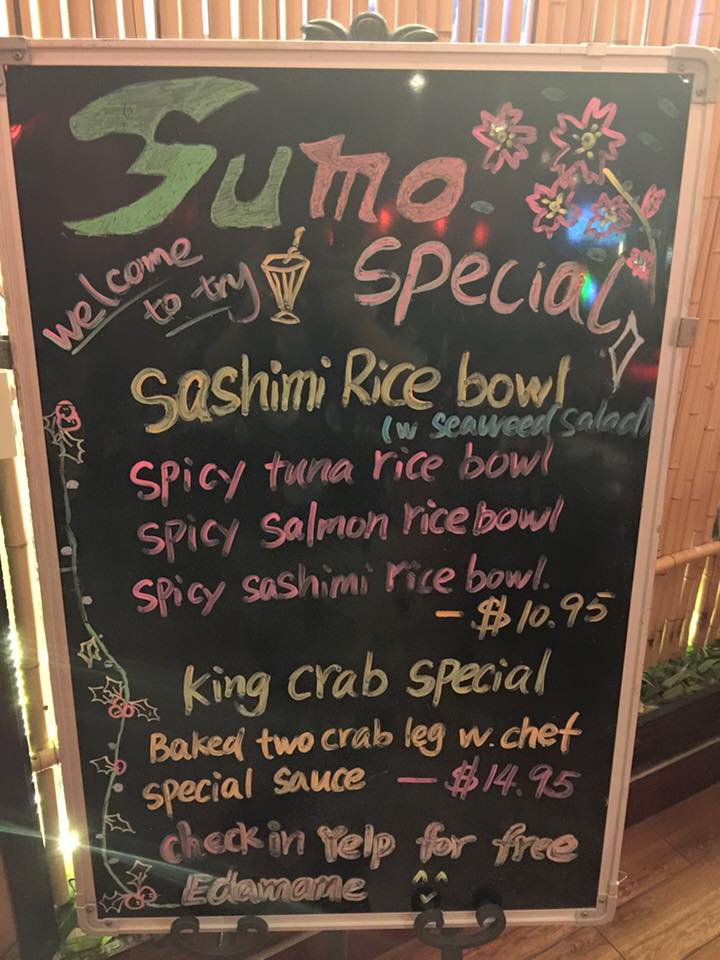 Sumo
welcome
to try
special
Sashimi Rice bowl
(w seaweed salad)
spicy tuna rice bowl
spicy salmon rice bowl
spicy sashimi rice bowl.
- $10.95
King crab special
Baked two crab leg w. chef
special sauce - $14.95
check in Yelp for free
Edamame ^^